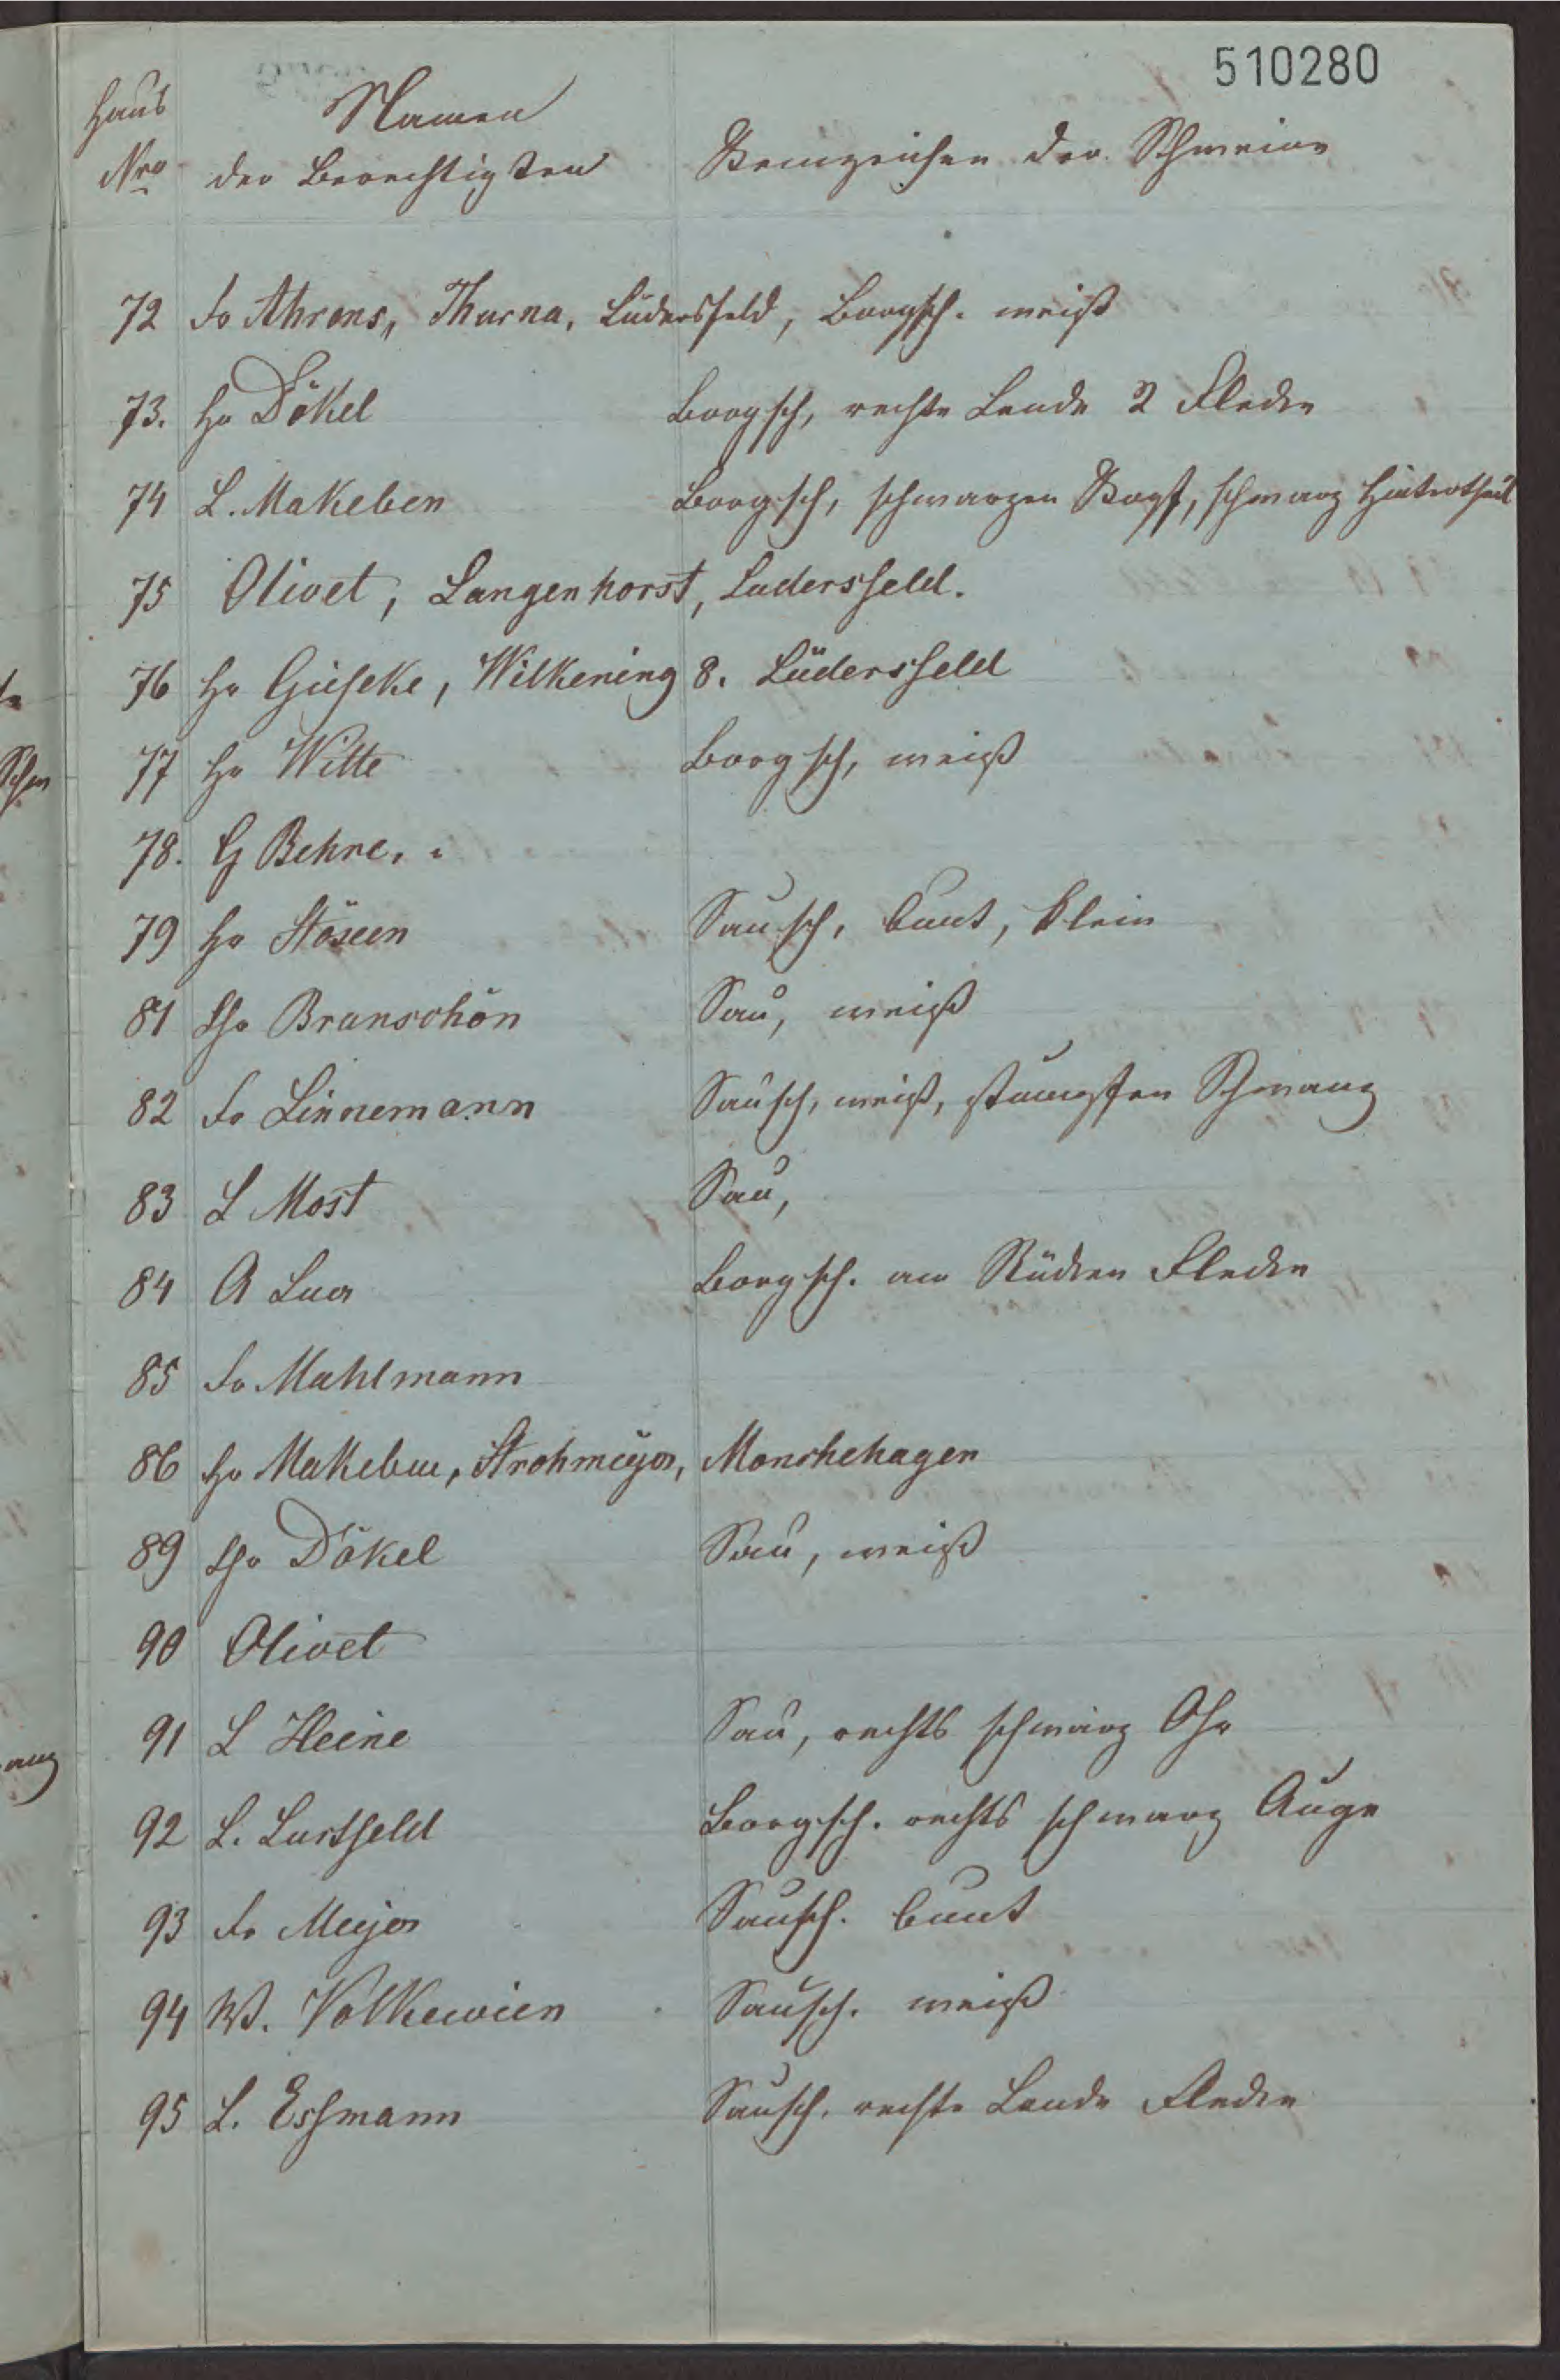 510280
Haus Namen
Nro der Berechtigten Kennzeichen der Schweine
72 Fr Ahrens, Thurna, Lüdersfeld, Borgsch. weiß
73. Hr Dökel Borgsch, rechte Lende 2 Flecke
74 L. Makeben Borgsch, schwarzen Kopf, schwarz Hintertheil
75 Olivet, Langenhorst, Ludersfeld.
76 Hr Gieseke, Wilkening 8. Lüdersfeld
77 Hr Witte Borgsch, weiß
78. G Behre.
79 Hr Stöxen Sausch, bunt, klein
81 Chr Branschön Sau, weiß
82 Fr Linnemann Sausch, weiß, stumpfen Schwanz
83 L Most Sau,
84 A Luer Borgsch. am Rücken Flecke
85 Fr Mahlmann
86 Hr Makeben, Strohmeyer, Monchehagen
89 Chr Dökel Sau, weiß
90 Olivet
91 L Heine Sau, rechts schwarz Ohr
92 L. Lustfeld Borgsch. rechts schwarz Auge
93 Fr Meyer Sausch. bunt
94 W. Volkewien Sausch. weiß
95 L. Essmann Sausch. rechte Lende Flecke